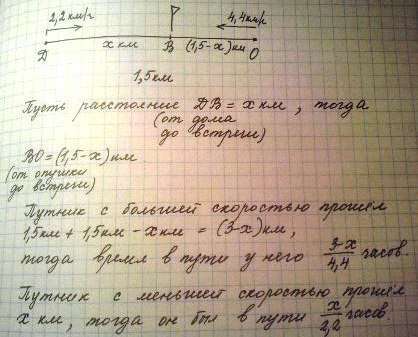 2,2 км/ч 4,4 км/ч
D х км В (1,5-х) км О
1,5 км
Пусть расстояние DB = х км, тогда
(от дома
до встречи)
ВО = (1,5-х) км
(от опушки
до встречи)
Путник с большей скоростью прошёл
1,5 км + 1,5 км - х км = (3-х) км,
тогда время в пути у него 3-х/4,4 часов.
Путник с меньшей скоростью прошёл
х км, тогда он был в пути х/2,2 часов.